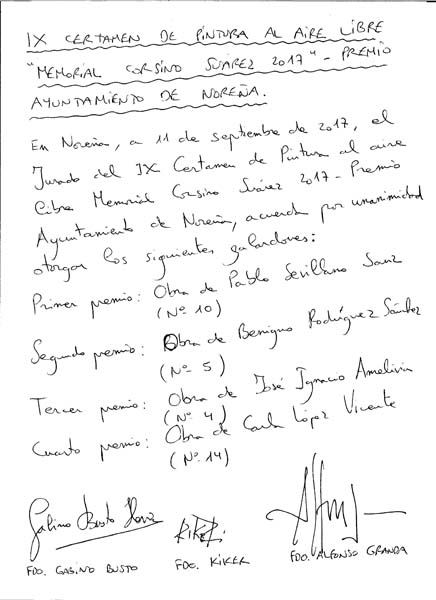 IX CERTAMEN DE PINTURA AL AIRE LIBRE
"MEMORIAL CORSINO SUÁREZ 2017" - PREMIO
AYUNTAMIENTO DE NOREÑA.
En Noreña, a 11 de septiembre de 2017, el
Jurado del IX Certamen de Pintura al aire
libre Memorial Corsino Suárez 2017 - Premio
Ayuntamiento de Noreña, acuerda por unanimidad
otorgar los siguientes galardones:
Primer premio: Obra de Pablo Sevillano Sanz
(Nº 10)
Segundo premio: Obra de Benigno Rodríguez Sánchez
(Nº 5)
Tercer premio: Obra de José Ignacio Amelivia
(Nº 4)
Cuarto premio: Obra de Carla López Vicente
(Nº 14)
Gabino Busto
KIKER
FDO. GABINO BUSTO
FDO. KIKER
FDO. ALFONSO GRANDA